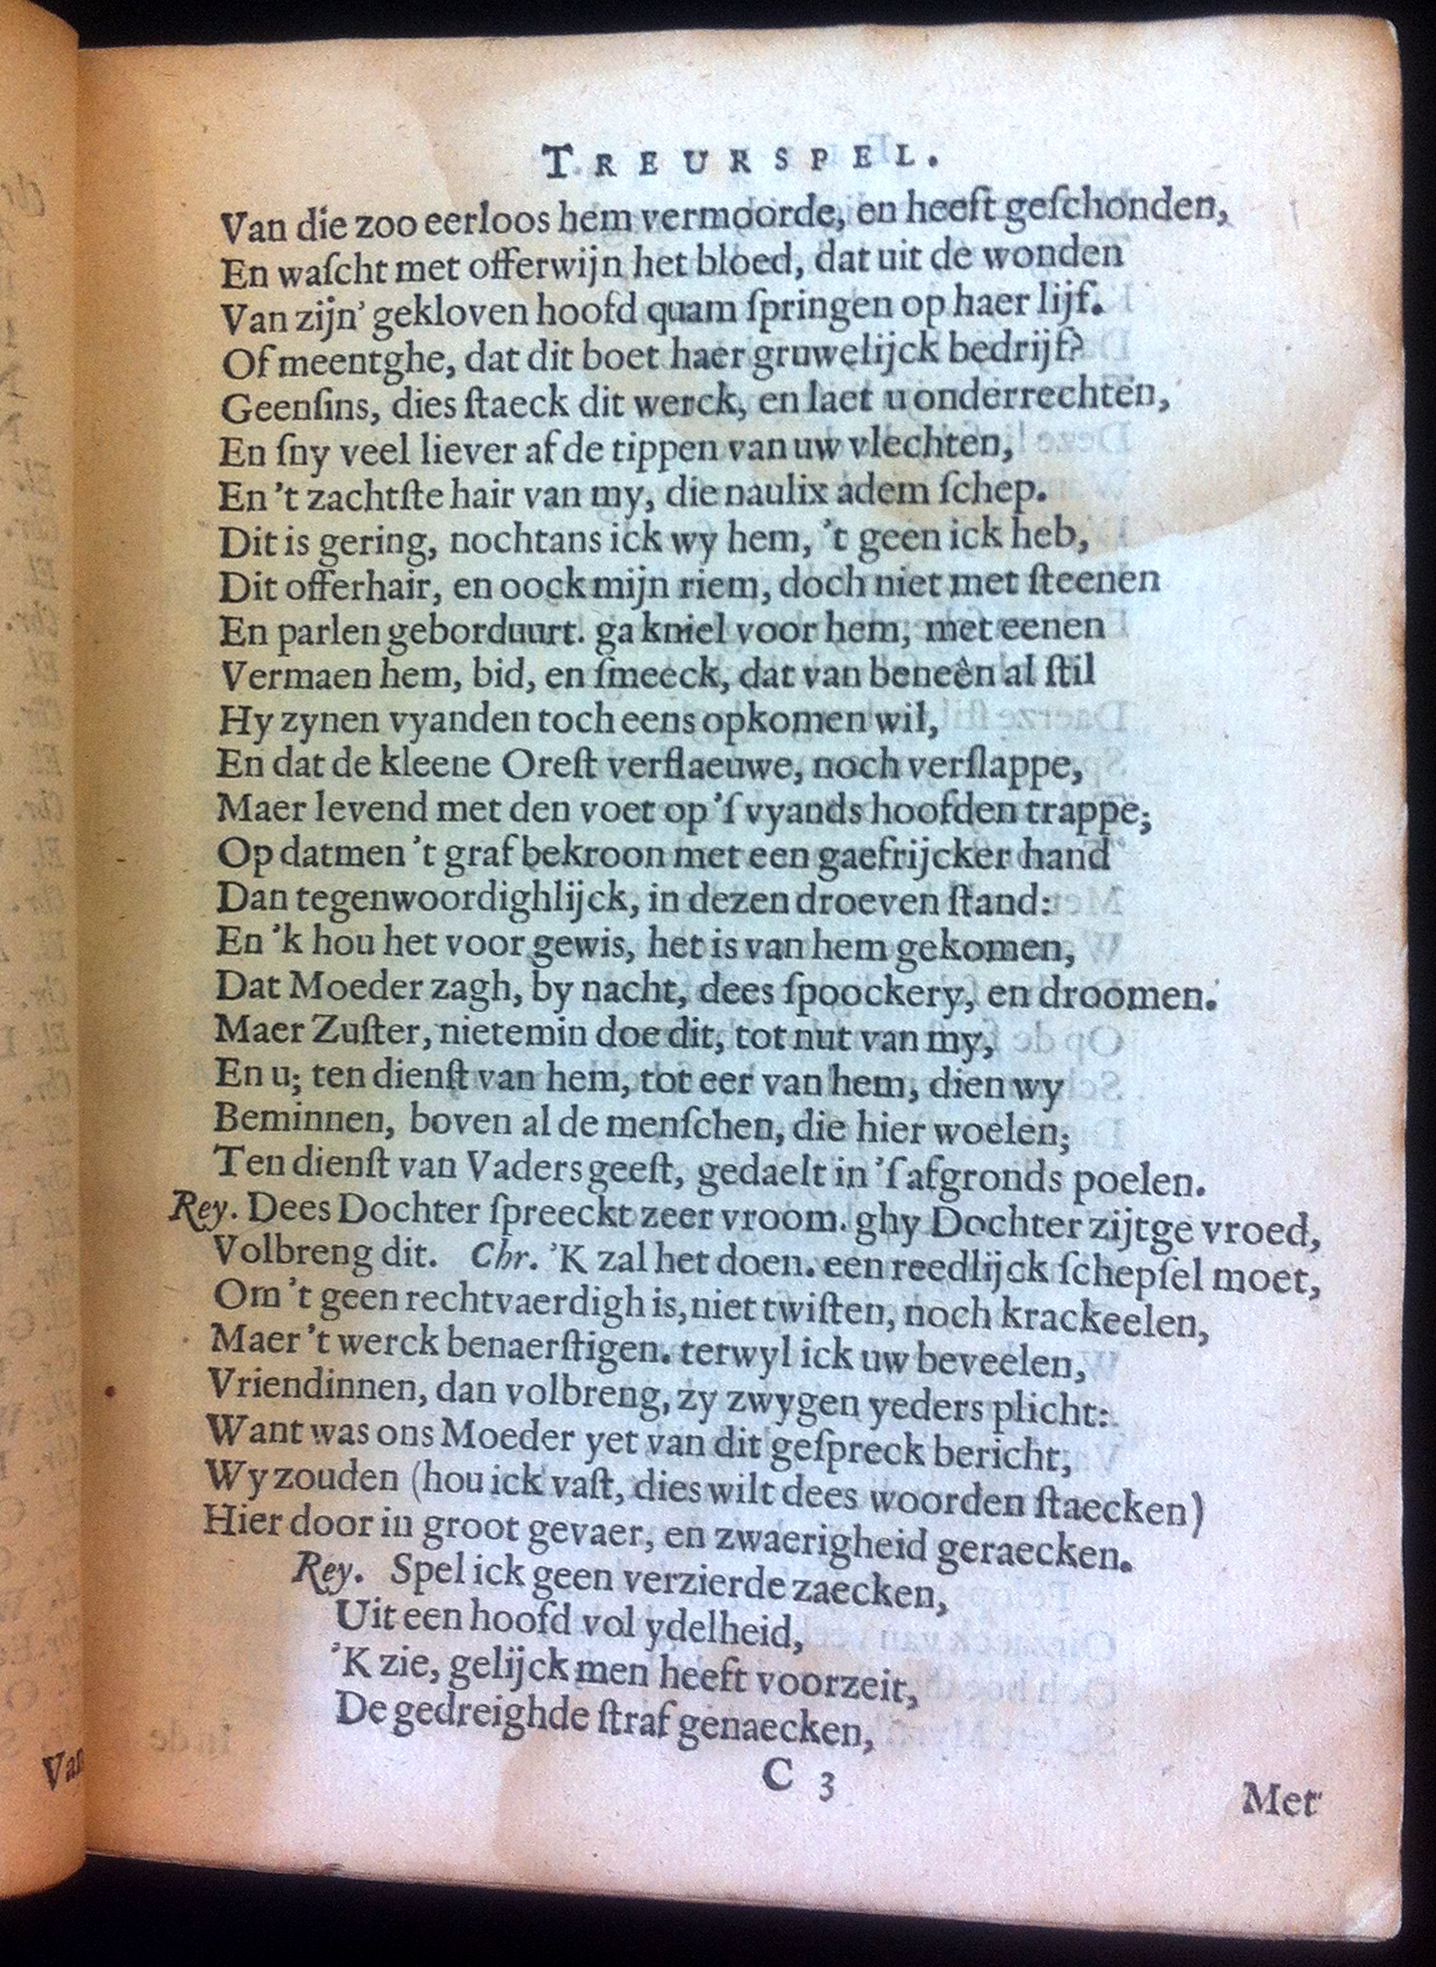 TREURSPEL.
Van die zoo eerloos hem vermoorde, en heeft geſchonden,
En waſcht met offerwijn het bloed, dat uit de wonden
Van zijn' gekloven hoofd quam ſpringen op haer lijf.
Of meentghe, dat dit boet haer gruwelijck bedrijf?
Geenſins, dies ſtaeck dit werck, en laet u onderrechten,
En ſny veel liever af de tippen van uw vlechten,
En 't zachtſte hair van my, die naulix adem ſchep.
Dit is gering, nochtans ick wy hem, 't geen ick heb,
Dit offerhair, en oock mijn riem, doch niet met ſteenen
En parlen geborduurt. ga kniel voor hem, met eenen
Vermaen hem, bid, en ſmeeck, dat van beneên al ſtil
Hy zynen vyanden toch eens opkomen wil,
En dat de kleene Oreſt verflaeuwe, noch verſlappe,
Maer levend met den voet op 'ſ vyands hoofden trappe;
Op datmen 't graf bekroon met een gaefrijcker hand
Dan tegenwoordighlijck, in dezen droeven ſtand:
En 'k hou het voor gewis, het is van hem gekomen,
Dat Moeder zagh, by nacht, dees ſpoockery, en droomen.
Maer Zuſter, nietemin doe dit, tot nut van my,
En u; ten dienſt van hem, tot eer van hem, dien wy
Beminnen, boven al de menſchen, die hier woelen;
Ten dienſt van Vaders geeſt, gedaelt in 'ſ afgronds poelen.
Rey. Dees Dochter ſpreeckt zeer vroom. ghy Dochter zijtge vroed,
Volbreng dit. Chr. 'K zal het doen. een reedlijck ſchepſel moet,
Om 't geen rechtvaerdigh is, niet twiſten, noch krackeelen,
Maer 't werck benaerſtigen. terwyl ick uw beveelen,
Vriendinnen, dan volbreng, zy zwygen yeders plicht:
Want was ons Moeder yet van dit geſpreck bericht,
Wy zouden (hou ick vaſt, dies wilt dees woorden ſtaecken)
Hier door in groot gevaer, en zwaerigheid geraecken.
Rey. Spel ick geen verzierde zaecken,
Uit een hoofd vol ydelheid,
'K zie, gelijck men heeft voorzeit,
De gedreighde ſtraf genaecken,
C 3
Met
Van